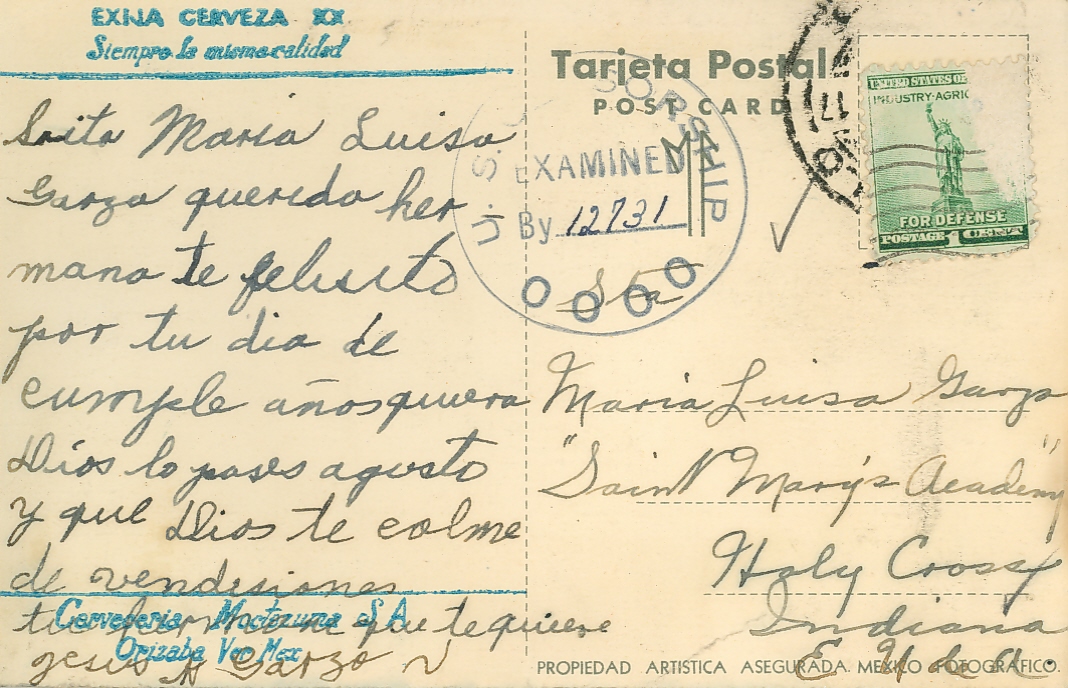 EXIJA CERVEZA XX
Siempre la misma calidad
Srita Maria Luisa
Garza querida her
mana te felisito
por tu dia de
cumple años quiera
Dios lo pases agusto
y que Dios te colme
de vendisiones
tu hermano que te quiere
Jesus H Garza
Cerveceria Moctezuma S A
Orizaba Ver Mex
Tarjeta Postal
POST CARD
U.S. CENSORSHIP
EXAMINED
By 12731
UNITED STATES OF
INDUSTRY-AGRIC
FOR DEFENSE
POSTAGE 1 CENT
Sta
Maria Luisa Garza
"Saint Mary's Academy"
Holy Cross
Indiana
E. U de A.
PROPIEDAD ARTISTICA ASEGURADA. MEXICO FOTOGRAFICO.